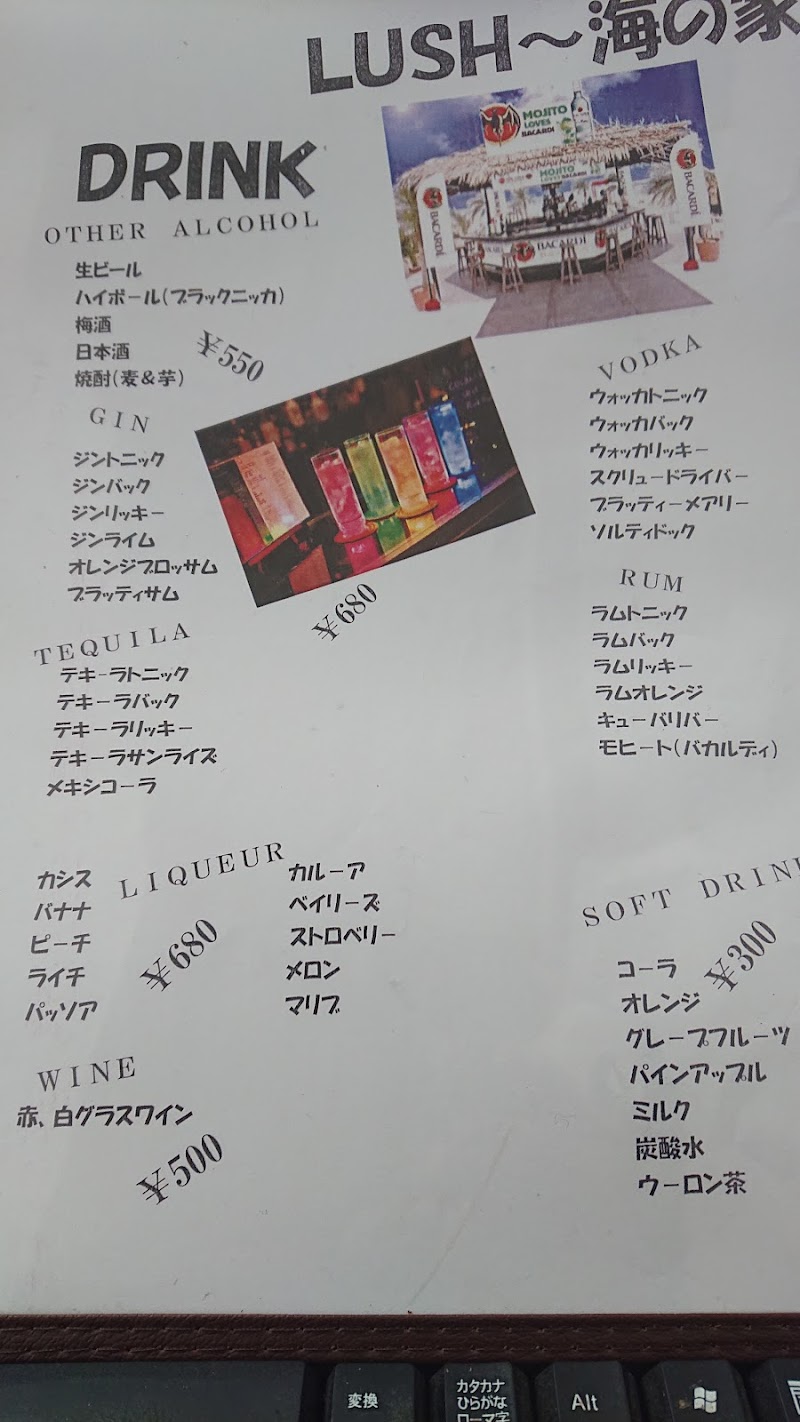 LUSH〜海の家
MOJITO
LOVES
BACARDI
MOJITO
BACARDÍ
BACARDÍ
BACARDÍ
DRINK
OTHER ALCOHOL
生ビール
ハイボール(ブラックニッカ)
梅酒
日本酒
焼酎(麦&芋)
¥550
GIN
ジントニック
ジンバック
ジンリッキー
ジンライム
オレンジブロッサム
ブラッティサム
¥680
TEQUILA
テキーラトニック
テキーラバック
テキーラリッキー
テキーラサンライズ
メキシコーラ
VODKA
ウォッカトニック
ウォッカバック
ウォッカリッキー
スクリュードライバー
ブラッティーメアリー
ソルティドック
RUM
ラムトニック
ラムバック
ラムリッキー
ラムオレンジ
キューバリバー
モヒート(バカルディ)
LIQUEUR
カシス
バナナ
ピーチ
ライチ
パッソア
¥680
カルーア
ベイリーズ
ストロベリー
メロン
マリブ
WINE
赤、白グラスワイン
¥500
SOFT DRINK
¥300
コーラ
オレンジ
グレープフルーツ
パインアップル
ミルク
炭酸水
ウーロン茶
変換
カタカナ
ひらがな
ローマ字
Alt